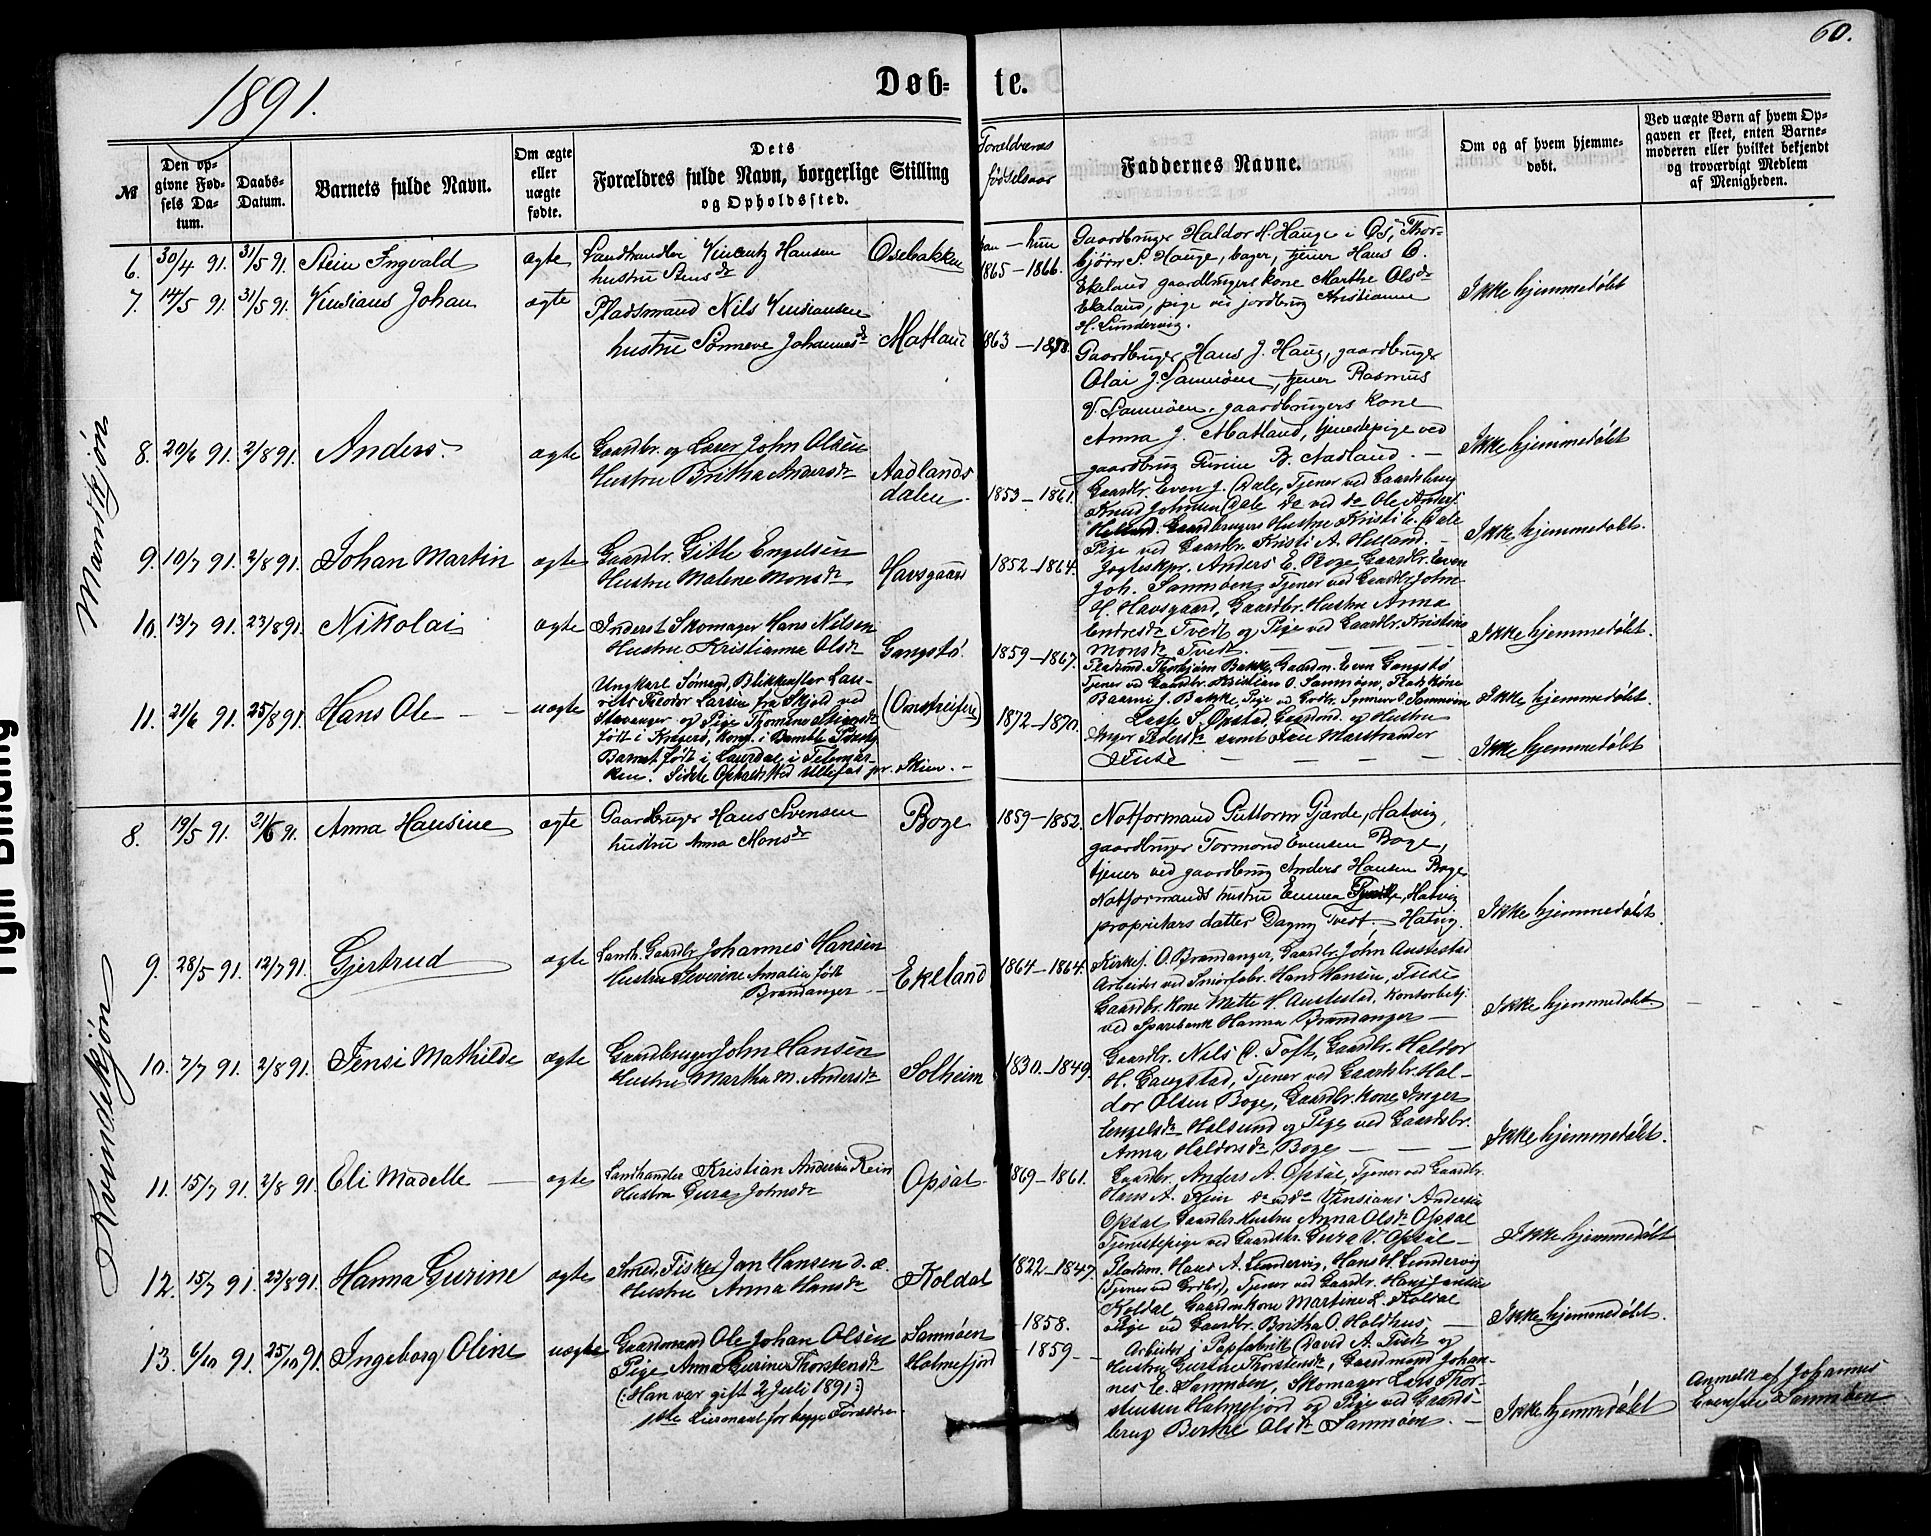 60.
1891.
Døb- te.
№
Den op-
givne Fød-
sels Da-
tum.
Daabs-
Datum.
Barnets fulde Navn.
Om ægte
eller
uægte
fødte.
Dets
Forældres fulde Navn, borgerlige Stilling
og Opholdssted.
Forældrenes
fødselsaar
Faddernes Navne.
Om og af hvem hjemme-
døbt.
Ved uægte Børn af hvem Op-
gaven er skeet, enten Barne-
moderen eller hvilket bekjendt
og troværdigt Medlem
af Menigheden.
Mandkjøn
6. 30/4 91. 31/5 91. Stein Ingvald ægte Landhandler Vincentz Hansen
hustru Stensdr
Osebakken
han - hun
1865 - 1866.
Gaardbruger Haldor H. Hauge i Os, Thor-
bjørn S. Hauge, bager, tjener Hans O.
Ekeland gaardbrugers kone Marthe Olsdr
Ekeland, pige ved jordbrug Kristianne
H. Sundervig.
Ikke hjemmedøbt
7. 14/5 91. 31/5 91. Vinsians Johan ægte Pladsmand Nils Vinsiansen
hustru Sønneve Johannesdr Matland
1863 - 1858.
Gaardbruger Hans J. Haug, gaardbruger
Olai J. Samnøen, tjener Rasmus
V. Samnøen, gaardbrugers kone
Anna J. Matland, tjenestepige ved
gaardbrug Gurine B. Aadland. -
Ikke hjemmedøbt
8. 20/6 91. 2/8 91. Anders. ægte Gaardbr. og Lærer John Olsen
Hustru Britha Andersdr
Aadlands
dalen.
1853 - 1861.
Gaardbr. Even J. Dale, Tjener ved Gaardsbrug
Knud Johnsen Dale do ved do Ole Anders.
Helland. Gaardbrugers Hustru Kristi E. Dale
Pige ved Gaardbr. Kristi A. Helland. -
Ikke hjemmedøbt.
9. 10/7 91. 2/8 91. Johan Martin ægte Gaardbr. Gitle Engelsen
Hustru Malene Monsdr
Havsgaard
1852 - 1864.
Jagteskpr. Anders E. Boge, Gaardbr. Even
Joh. Samnøen, Tjener ved Gaardbr. John
H. Havsgaard, Gaardbr. Hustru Anna
Endresdr Tvedt og Pige ved Gaardbr. Kristine
Monsdr Tvedt. - - - -
Ikke hjemmedøbt.
10. 13/7 91. 23/8 91. Nikolai ægte Inderst Skomager Hans Nilsen
Hustru Kristianna Olsdr
Gangstø.
1859 - 1867.
Pladsmd. Thorbjørn Bakke, Gaardm. Even Gangstø
Tjener ved Gaardbr. Kristian O. Samnøen, Pladskone
Baarni J. Bakke, Pige ved Grdbr. Synneve O. Samnøen
Ikke hjemmedøbt.
11. 21/6 91. 25/8 91. Hans Ole - - uægte Ungkarl Sømand, Blikkenslar Lau-
rits Teodor Larsen fra Skjold ved
Stavanger og Pige Thomine
født i Kragerø, konf. i Bamble Præstg.
Barnet født i Laurdal i Telemar-
ken. Sidste Opholdssted Ullefos pr. Skien. -
(Omstreifere)
1872 - 1870.
Lasse S. Opstad, Lægdmd. og Hustru
Inger Pedersdr samt Marstrander
Fuse - - - -
Ikke hjemmedøbt
Kvindekjøn
8. 19/5 91. 21/6 91. Anna Hansine ægte Gaardbruger Hans Svensen
hustru Anna Monsdr
Boge
1859 - 1852.
Notformand Guttorm Gjerde, Hatvig,
gaardbruger Tormond Evensen Boge,
tjener ved gaardbrug Anders Hansen Boge
Notformands hustru Emma, Hatvig
proprietærs datter Dagny Tvedt, Hatvig.
Ikke hjemmedøbt
9. 28/5 91. 12/7 91. Gjertrud ægte Landh. Gaardbr. Johannes Hansen
Hustru Severine Amalia født
Brandanger
Ekeland
1864 - 1864.
Kirkes. O. Brandanger, Gaardbr. John Austestad
Arbeider ved Smørfabr. Hans Hansen, Fuse
Gaardbr. Kone Mette H. Austestad, Kontorbetj.
ved Sparebank Hanna Brandanger -
Ikke hjemmedøbt. - - -
10. 7/7 91. 2/8 91. Jensi Mathilde ægte Gaardbruger John Hansen
Hustru Martha M. Andersdr
Solheim
1830. - 1849.
Gaardbr. Nils O. Toft, Gaardbr. Haldor
H. Gangstad, Tjener ved Gaardsbr. Hal-
dor Olsen Boge, Gaardbr. Kone Inger
Engelsdr Holsund og Pige ved Gaardsbr.
Anna Haldorsdr Boge - - -
Ikke hjemmedøbt.
11. 15/7 91. 2/8 91. Eli Madelle - ægte Landhandler Kristian Andersen Rein
Hustru Gura Johnsdr
Opsal
1869 - 1861.
Gaardbr. Anders A. Opsal, Tjener ved Gaardbr.
Hans A. Rein do ved do Vinsians Andersen
Opsal Gaardbr. Hustru Anna Olsdr Opsal
Tjenestepige ved Gaardsbr. Gura V. Opsal -
Ikke hjemmedøbt
12. 15/7 91. 23/8 91. Hanna Gurine ægte Smed, Fisker Jan Hansen d. æ.
Hustru Anna Hansdr
Koldal
1822 - 1847.
Pladsm. Hans A. Sundervig, Hans H. Sundervig
(Tjener ved Grdbr.), Tjener ved Gaardbr. Hans Jansen
Koldal Gaardm. kone Martine L. Koldal
Pige ved Gaardbr. Britha O. Holdhus, -
Ikke hjemmedøbt.
13. 6/10 91. 25/10 91. Ingeborg Oline uægte Gaardmand Ole Johan Olsen
Pige Anna Gurine Thorstensdr
(: Han var gift 2 Juli 1891:)
1ste Leiermaal for begge Forældre.
Samnøen
Holmefjord
- 1858.
- 1859 -
Arbeider i Papfabrik David A. Fuse og
Hustru Gurine Thorstensdr, Gaardmand Johan-
nes E. Samnøen, Skomager Lars Thor-
stensen Holmefjord og Pige ved Gaards-
brug Berthe Olsdr Samnøen. -
Ikke hjemmedøbt
Anmeldt af Johannes
Evensen Samnøen